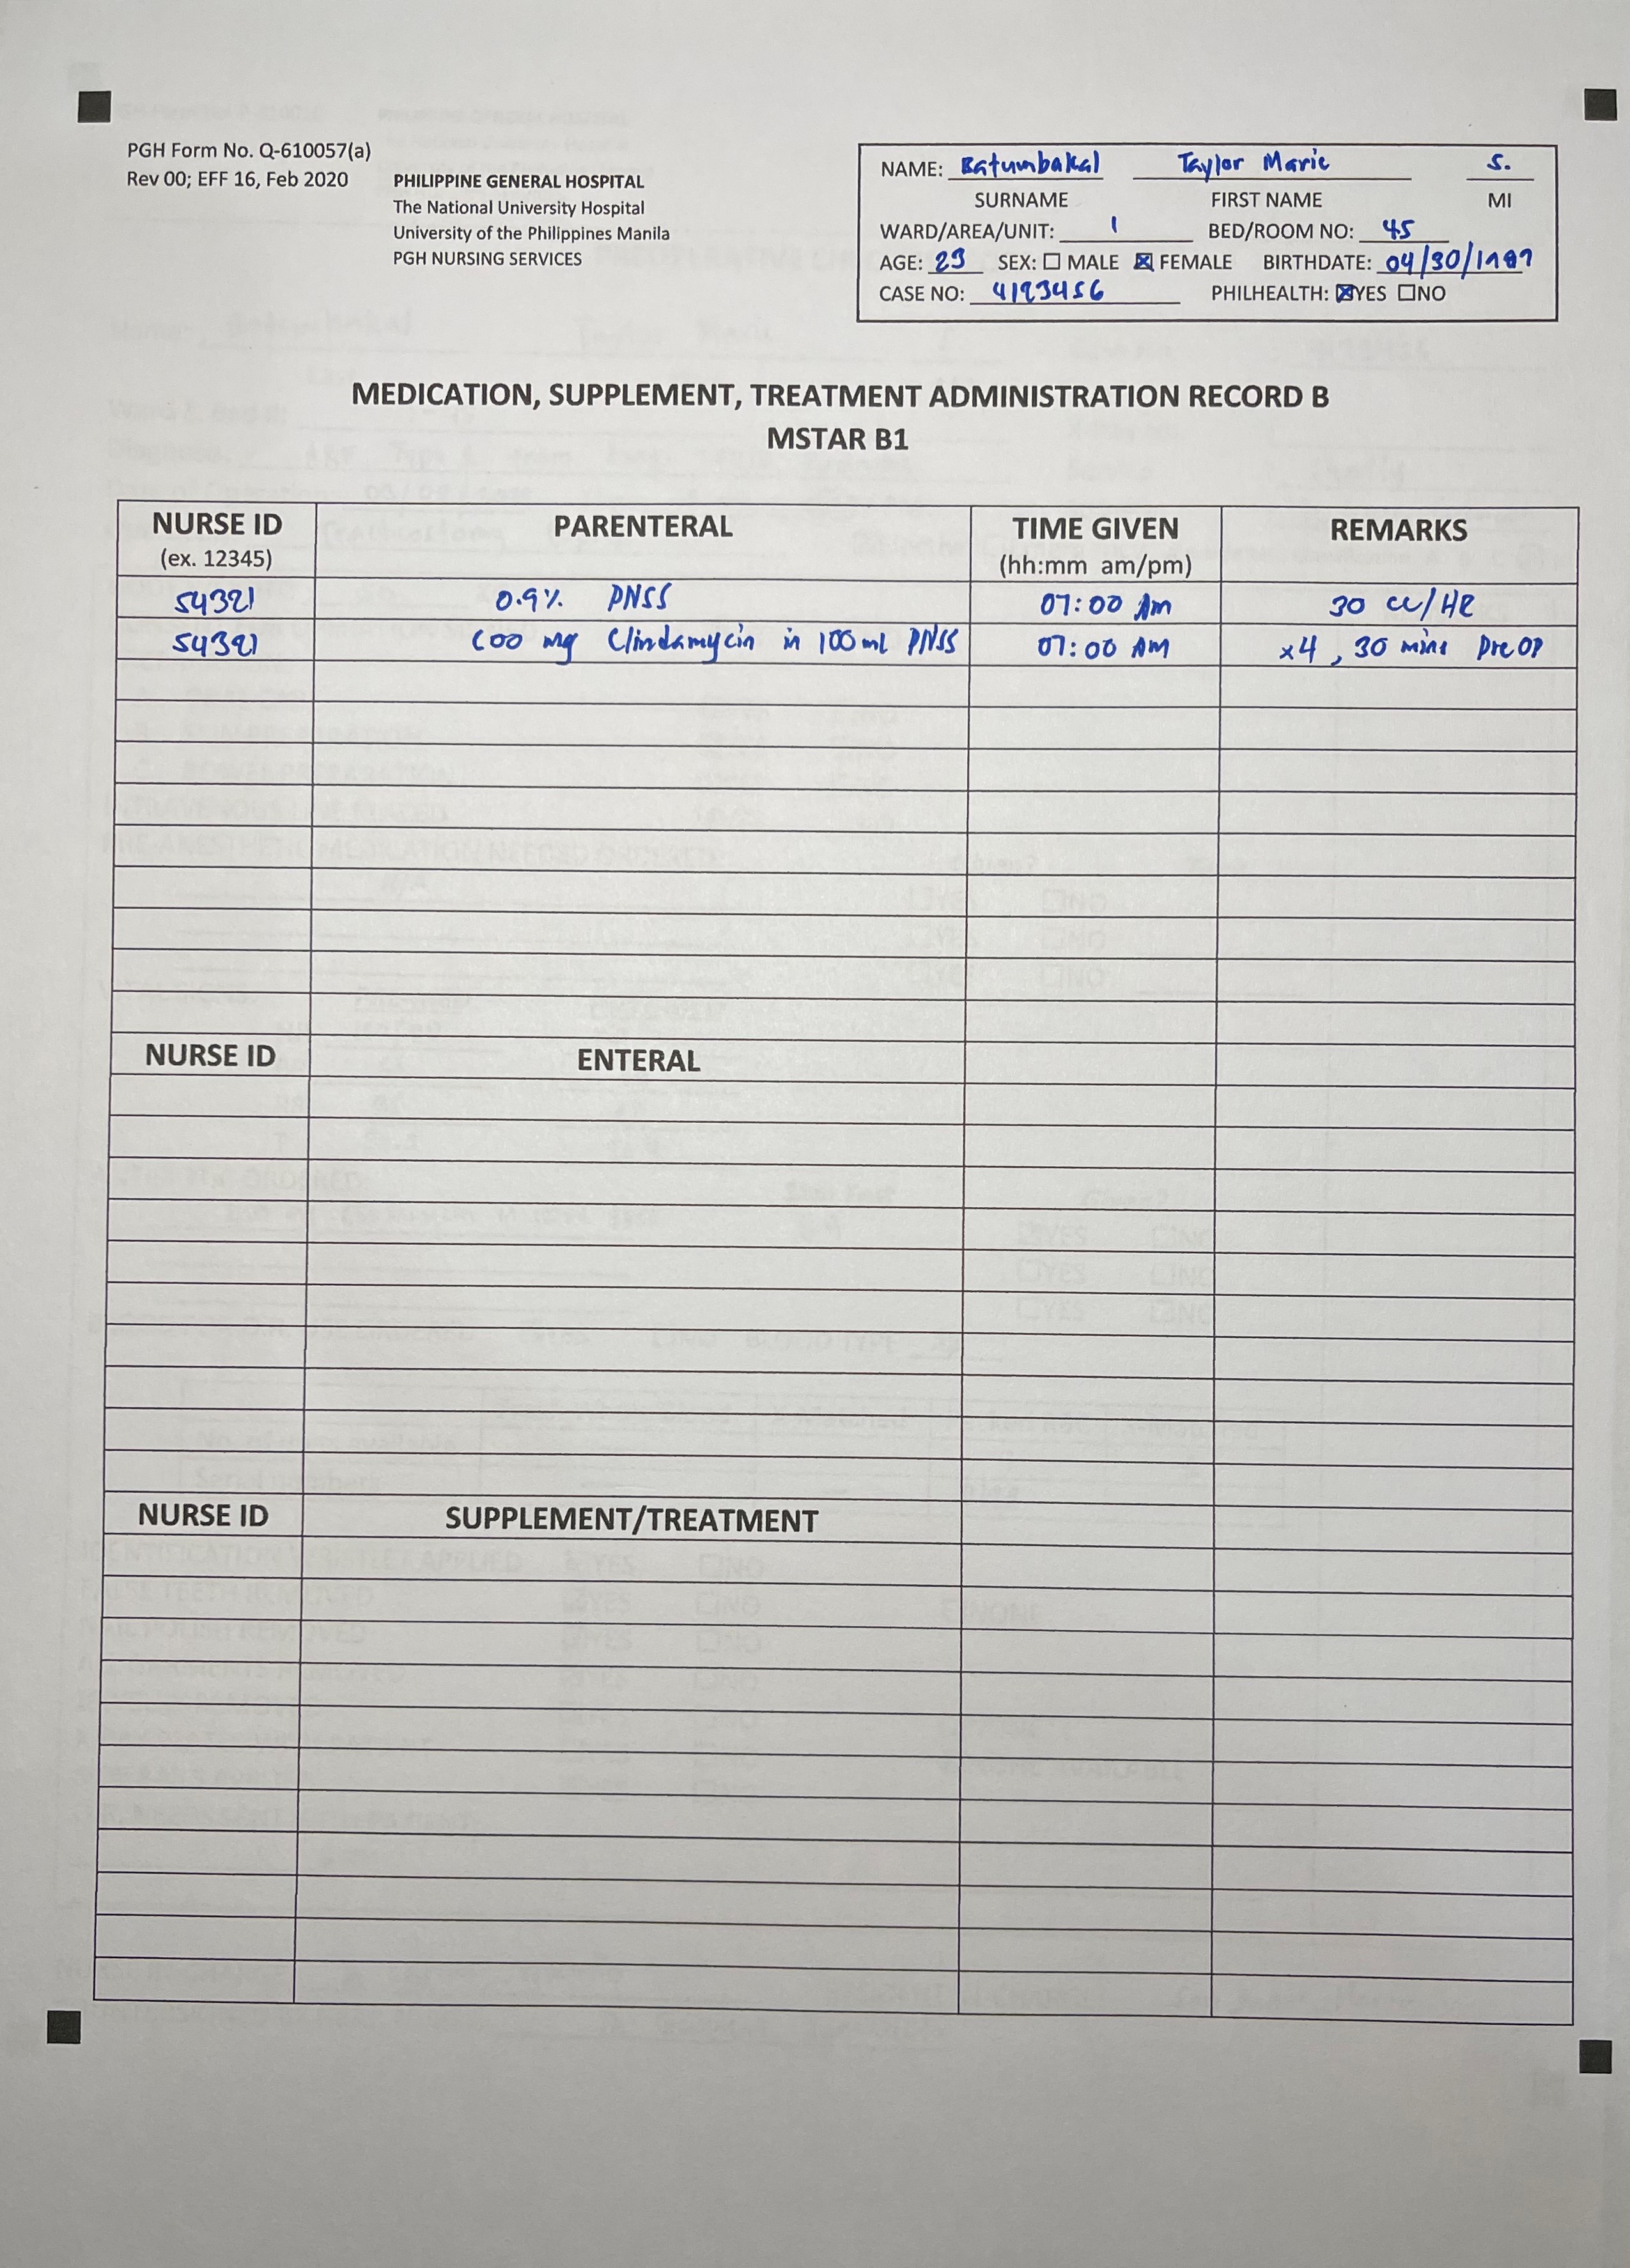 PGH Form No. Q-610057(a)
Rev 00; EFF 16, Feb 2020
PHILIPPINE GENERAL HOSPITAL
The National University Hospital
University of the Philippines Manila
PGH NURSING SERVICES
NAME: Batumbakal Taylor Marie S.
SURNAME FIRST NAME MI
WARD/AREA/UNIT: 1 BED/ROOM NO: 45
AGE: 23 SEX: ☐ MALE ☒ FEMALE BIRTHDATE: 04/30/1989
CASE NO: 4123456 PHILHEALTH: ☒ YES ☐ NO
MEDICATION, SUPPLEMENT, TREATMENT ADMINISTRATION RECORD B
MSTAR B1
NURSE ID PARENTERAL TIME GIVEN REMARKS
(ex. 12345) (hh:mm am/pm)
54321 0.9% PNSS 07:00 Am 30 cc/HR
54321 600 mg Clindamycin in 100 ml PNSS 07:00 AM x4, 30 mins Pre OP
NURSE ID ENTERAL
NURSE ID SUPPLEMENT/TREATMENT